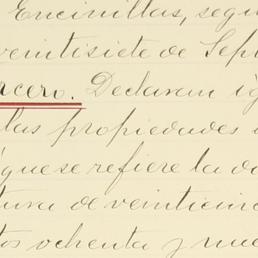 Encinillas, segu
veintisiete de Sep
rcero. Declaran ig
las propiedades
que se refiere la do
tura de veinticinc
tos ochenta y nue